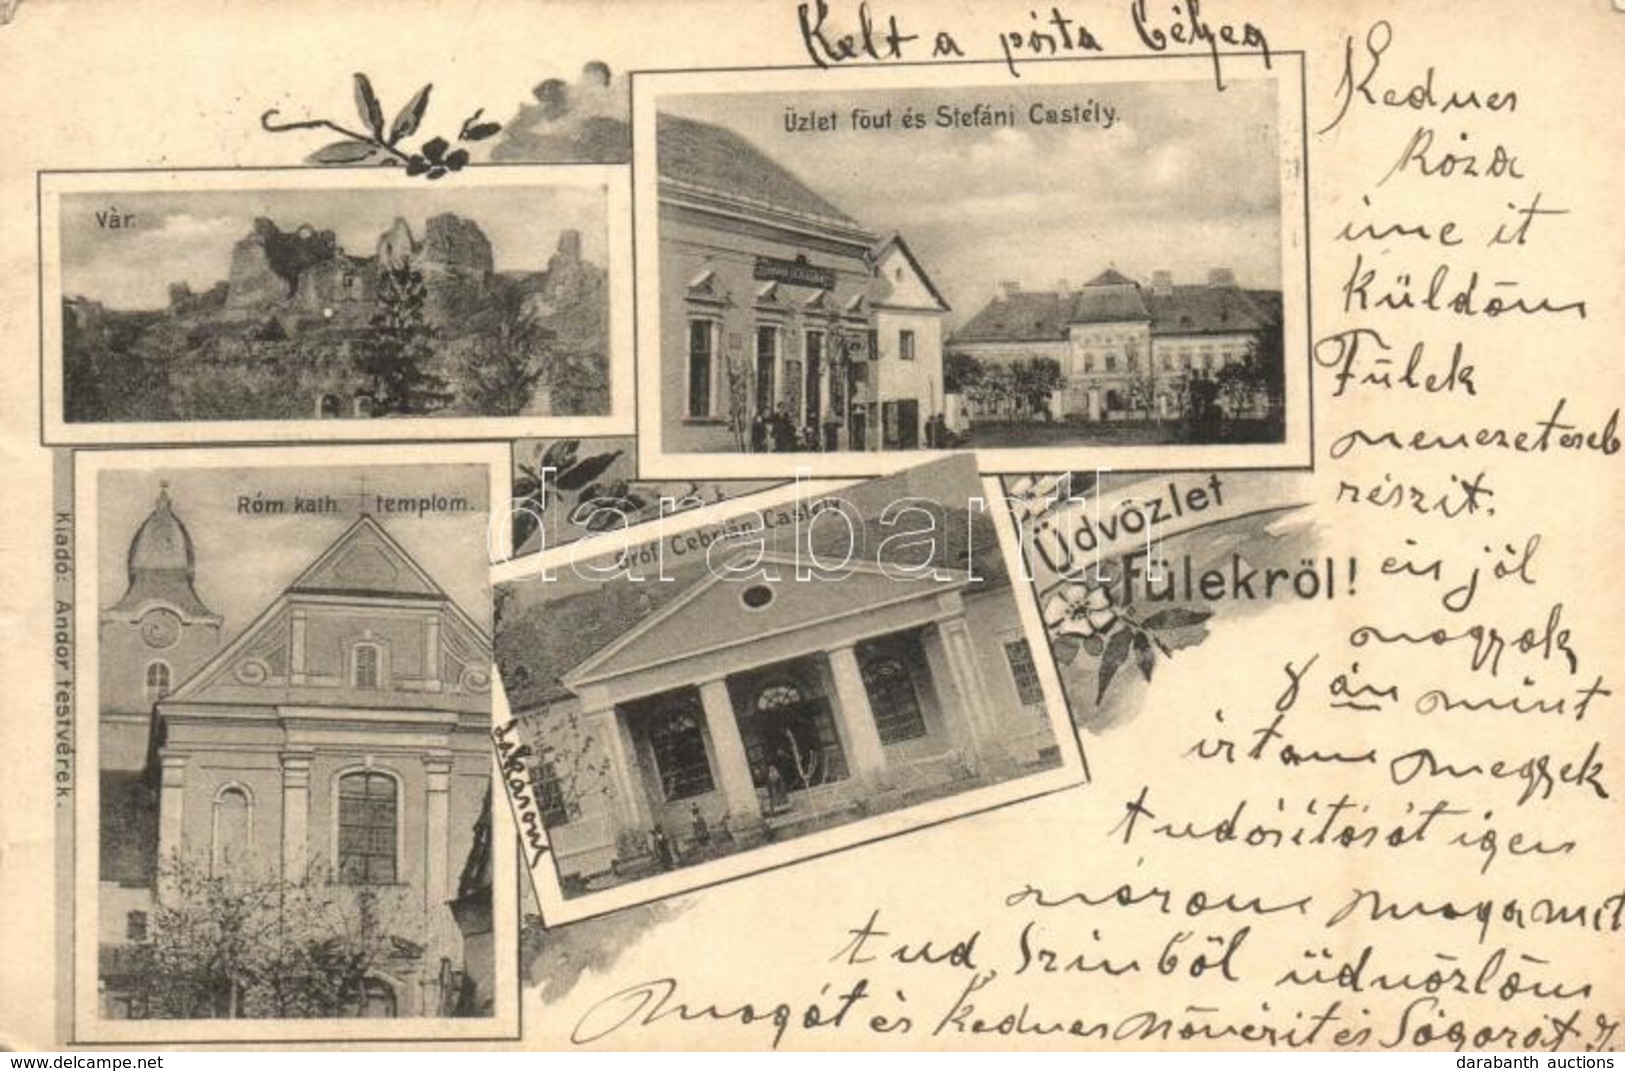 Kelt a pósta bélyeg
Üzlet föut és Stefáni Castély.
Vàr.
Róm. kath. templom.
Gróf. Cebrián Castély
Üdvözlet
Fülekröl!
Kiadó: Andor testvérek.
Kedves
Róza
ime it
Küldöm
Fülek
nevezeteseb
részit.
én jól
vagyok
mint
irtam
tudósitását igen
tud. Szivböl üdvözlöm
Magát és Kedves Növérit és Sógorát
darabanth
darabanth auctions